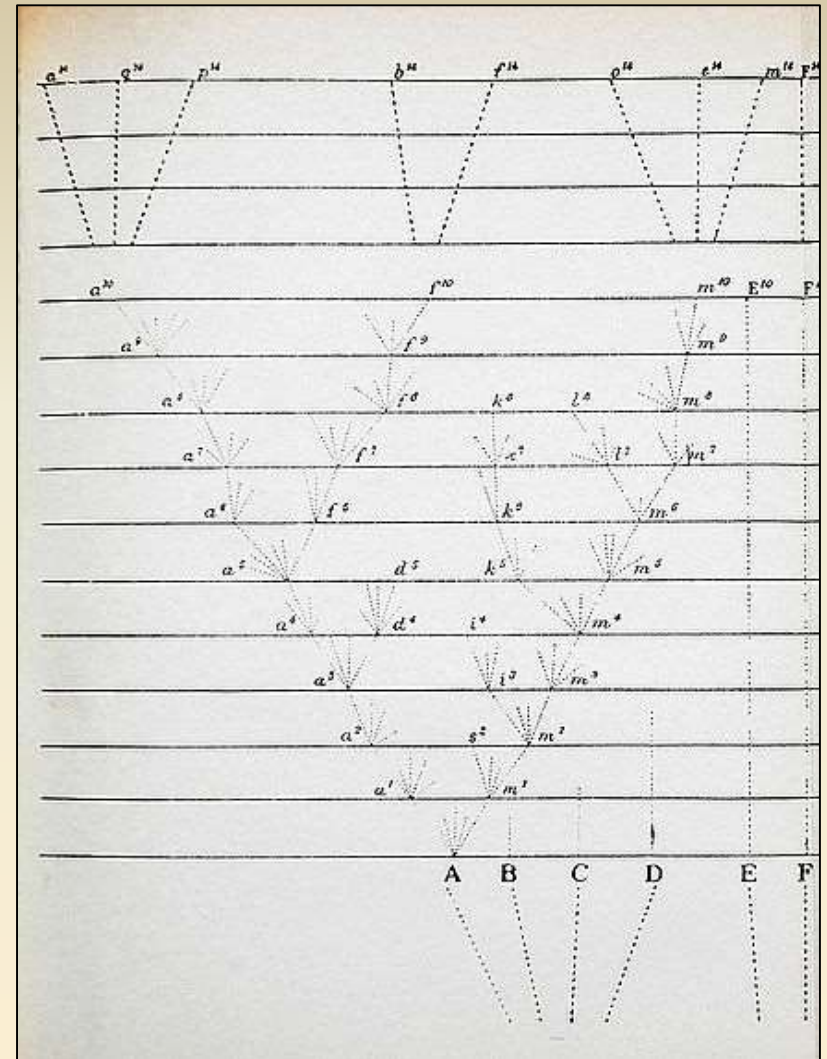 a¹⁴ q¹⁴ p¹⁴ b¹⁴ f¹⁴ o¹⁴ e¹⁴ m¹⁴ F¹⁴
a¹⁰ f¹⁰ m¹⁰ E¹⁰ F¹
a⁹ f⁹ m⁹
a⁸ f⁸ k⁸ l⁸ m⁸
a⁷ f⁷ l⁷ m⁷
a⁶ f⁶ k⁶ m⁶
a⁵ d⁵ k⁵ m⁵
a⁴ d⁴ i⁴ m⁴
a³ i³ m³
a² s² m²
a¹ m¹
A B C D E F